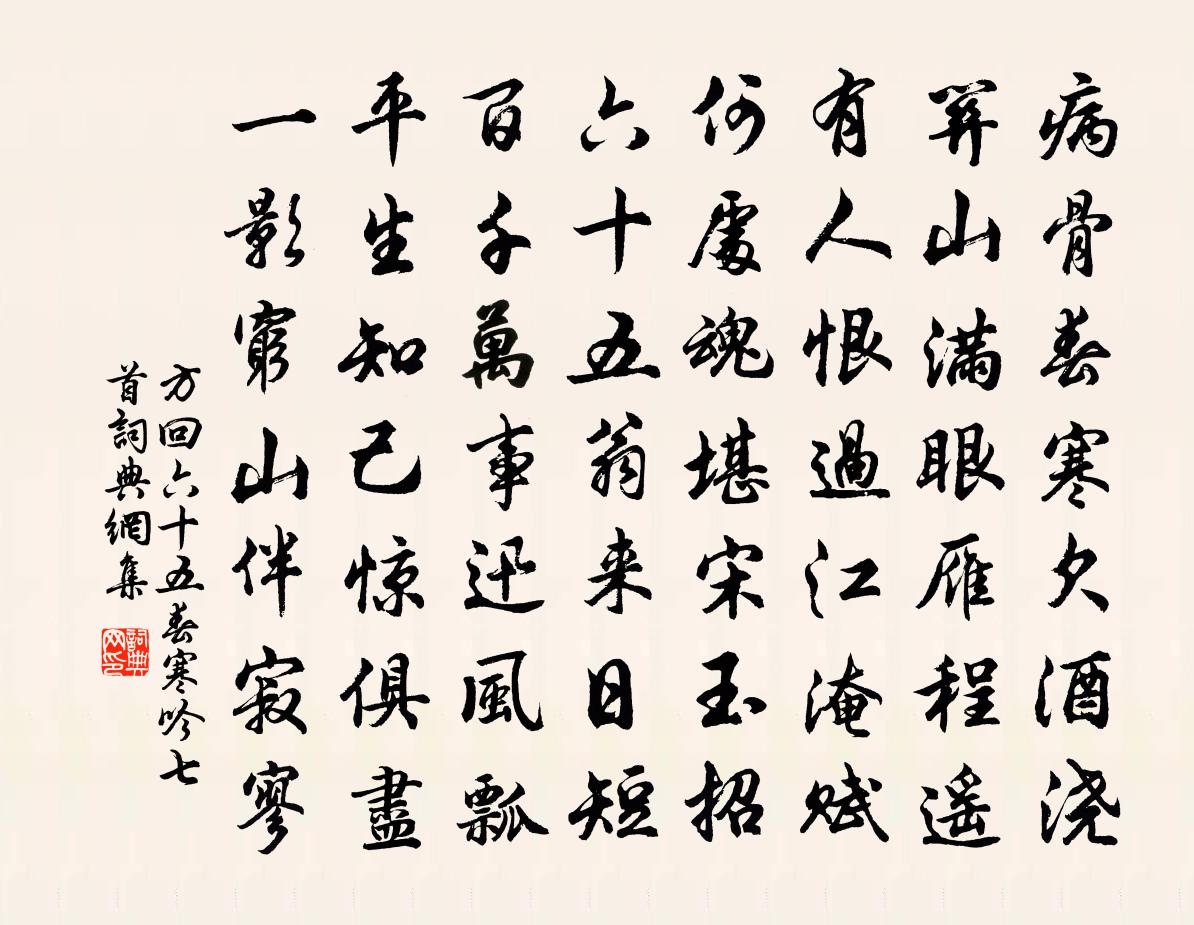 病骨春寒欠酒浇
関山满眼雁程遥
有人恨過江淹赋
何處魂堪宋玉招
六十五翁来日短
百千萬事迅風瓢
平生知己惊俱盡
一影窮山伴寂寥
方回六十五春寒吟七
首詞典網集
詞典
网印